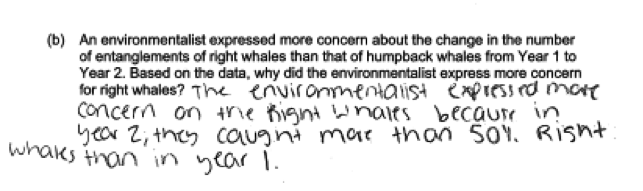 (b) An environmentalist expressed more concern about the change in the number
of entanglements of right whales than that of humpback whales from Year 1 to
Year 2. Based on the data, why did the environmentalist express more concern
for right whales? The environmentalist expressed more
concern on the Right Whales because in
year 2, they caught more than 50%. Right
whales than in year 1.